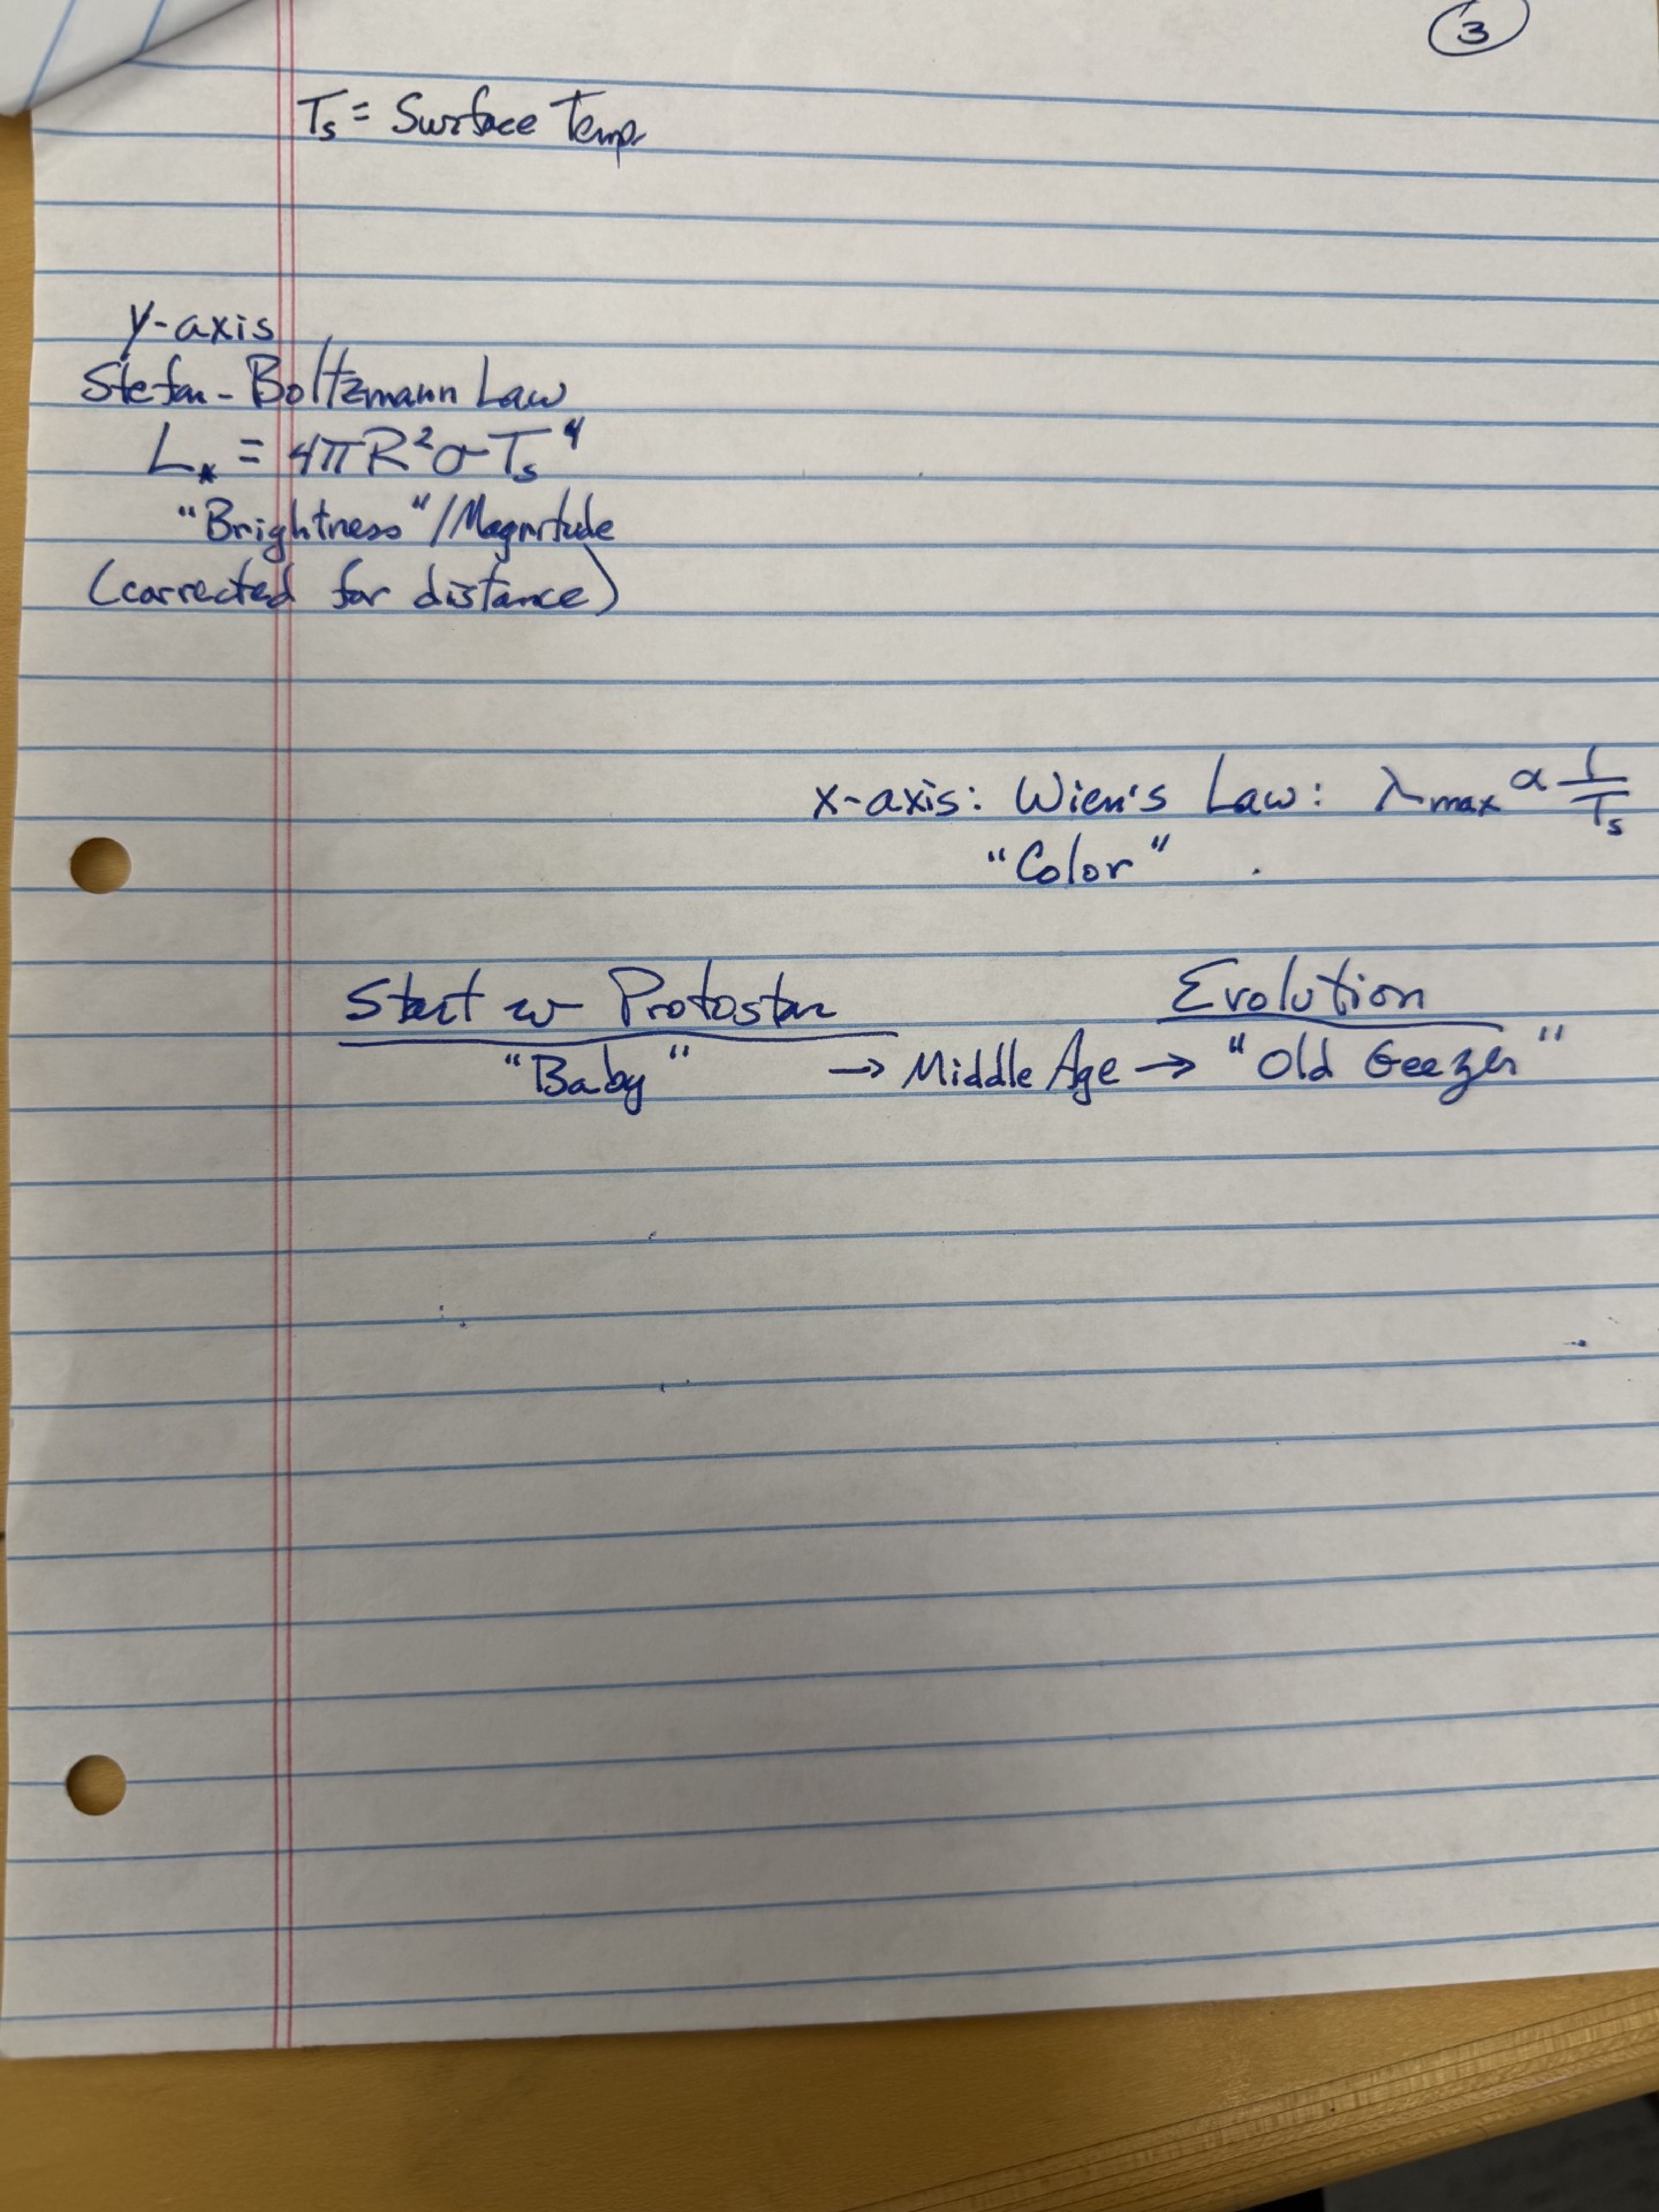 3
Ts = Surface Temp.
y-axis
Stefan-Boltzmann Law
L* = 4πR²σTs⁴
"Brightness"/Magnitude
(corrected for distance)
x-axis: Wien's Law: λmax ∝ 1/Ts
"Color"
Start w Protostar Evolution
"Baby" → Middle Age → "Old Geezer"